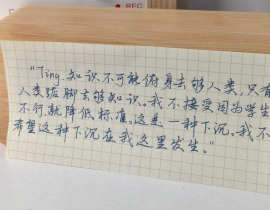 REC
“Ting 知识不可能俯身去够人类,只有
人类踮脚去够知识。我不接受因为学生
不行,就降低标准。这是一种下沉。我不
希望这种下沉在我这里发生。”